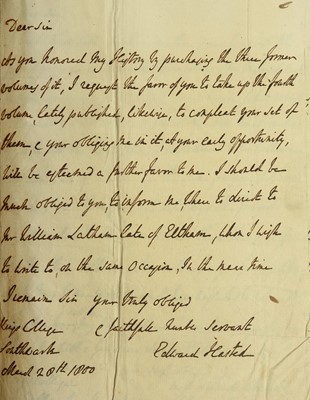 Dear Sir
As you honored my History by purchasing the three former
volumes of it, I request the favor of you to take up the fourth
volume, lately published, likewise, to compleat your set of
them, & your obliging me in it at your early opportunity,
will be esteemed a further favor to me. I should be
much obliged to you, to inform me where to direct to
Mr William Latham late of Eltham, whom I wish
to write to, on the same occasion, In the mean time
I remain Sir your truly obliged
Kings College & faithfull humble servant
Southwark Edward Hasted
March 28th 1800